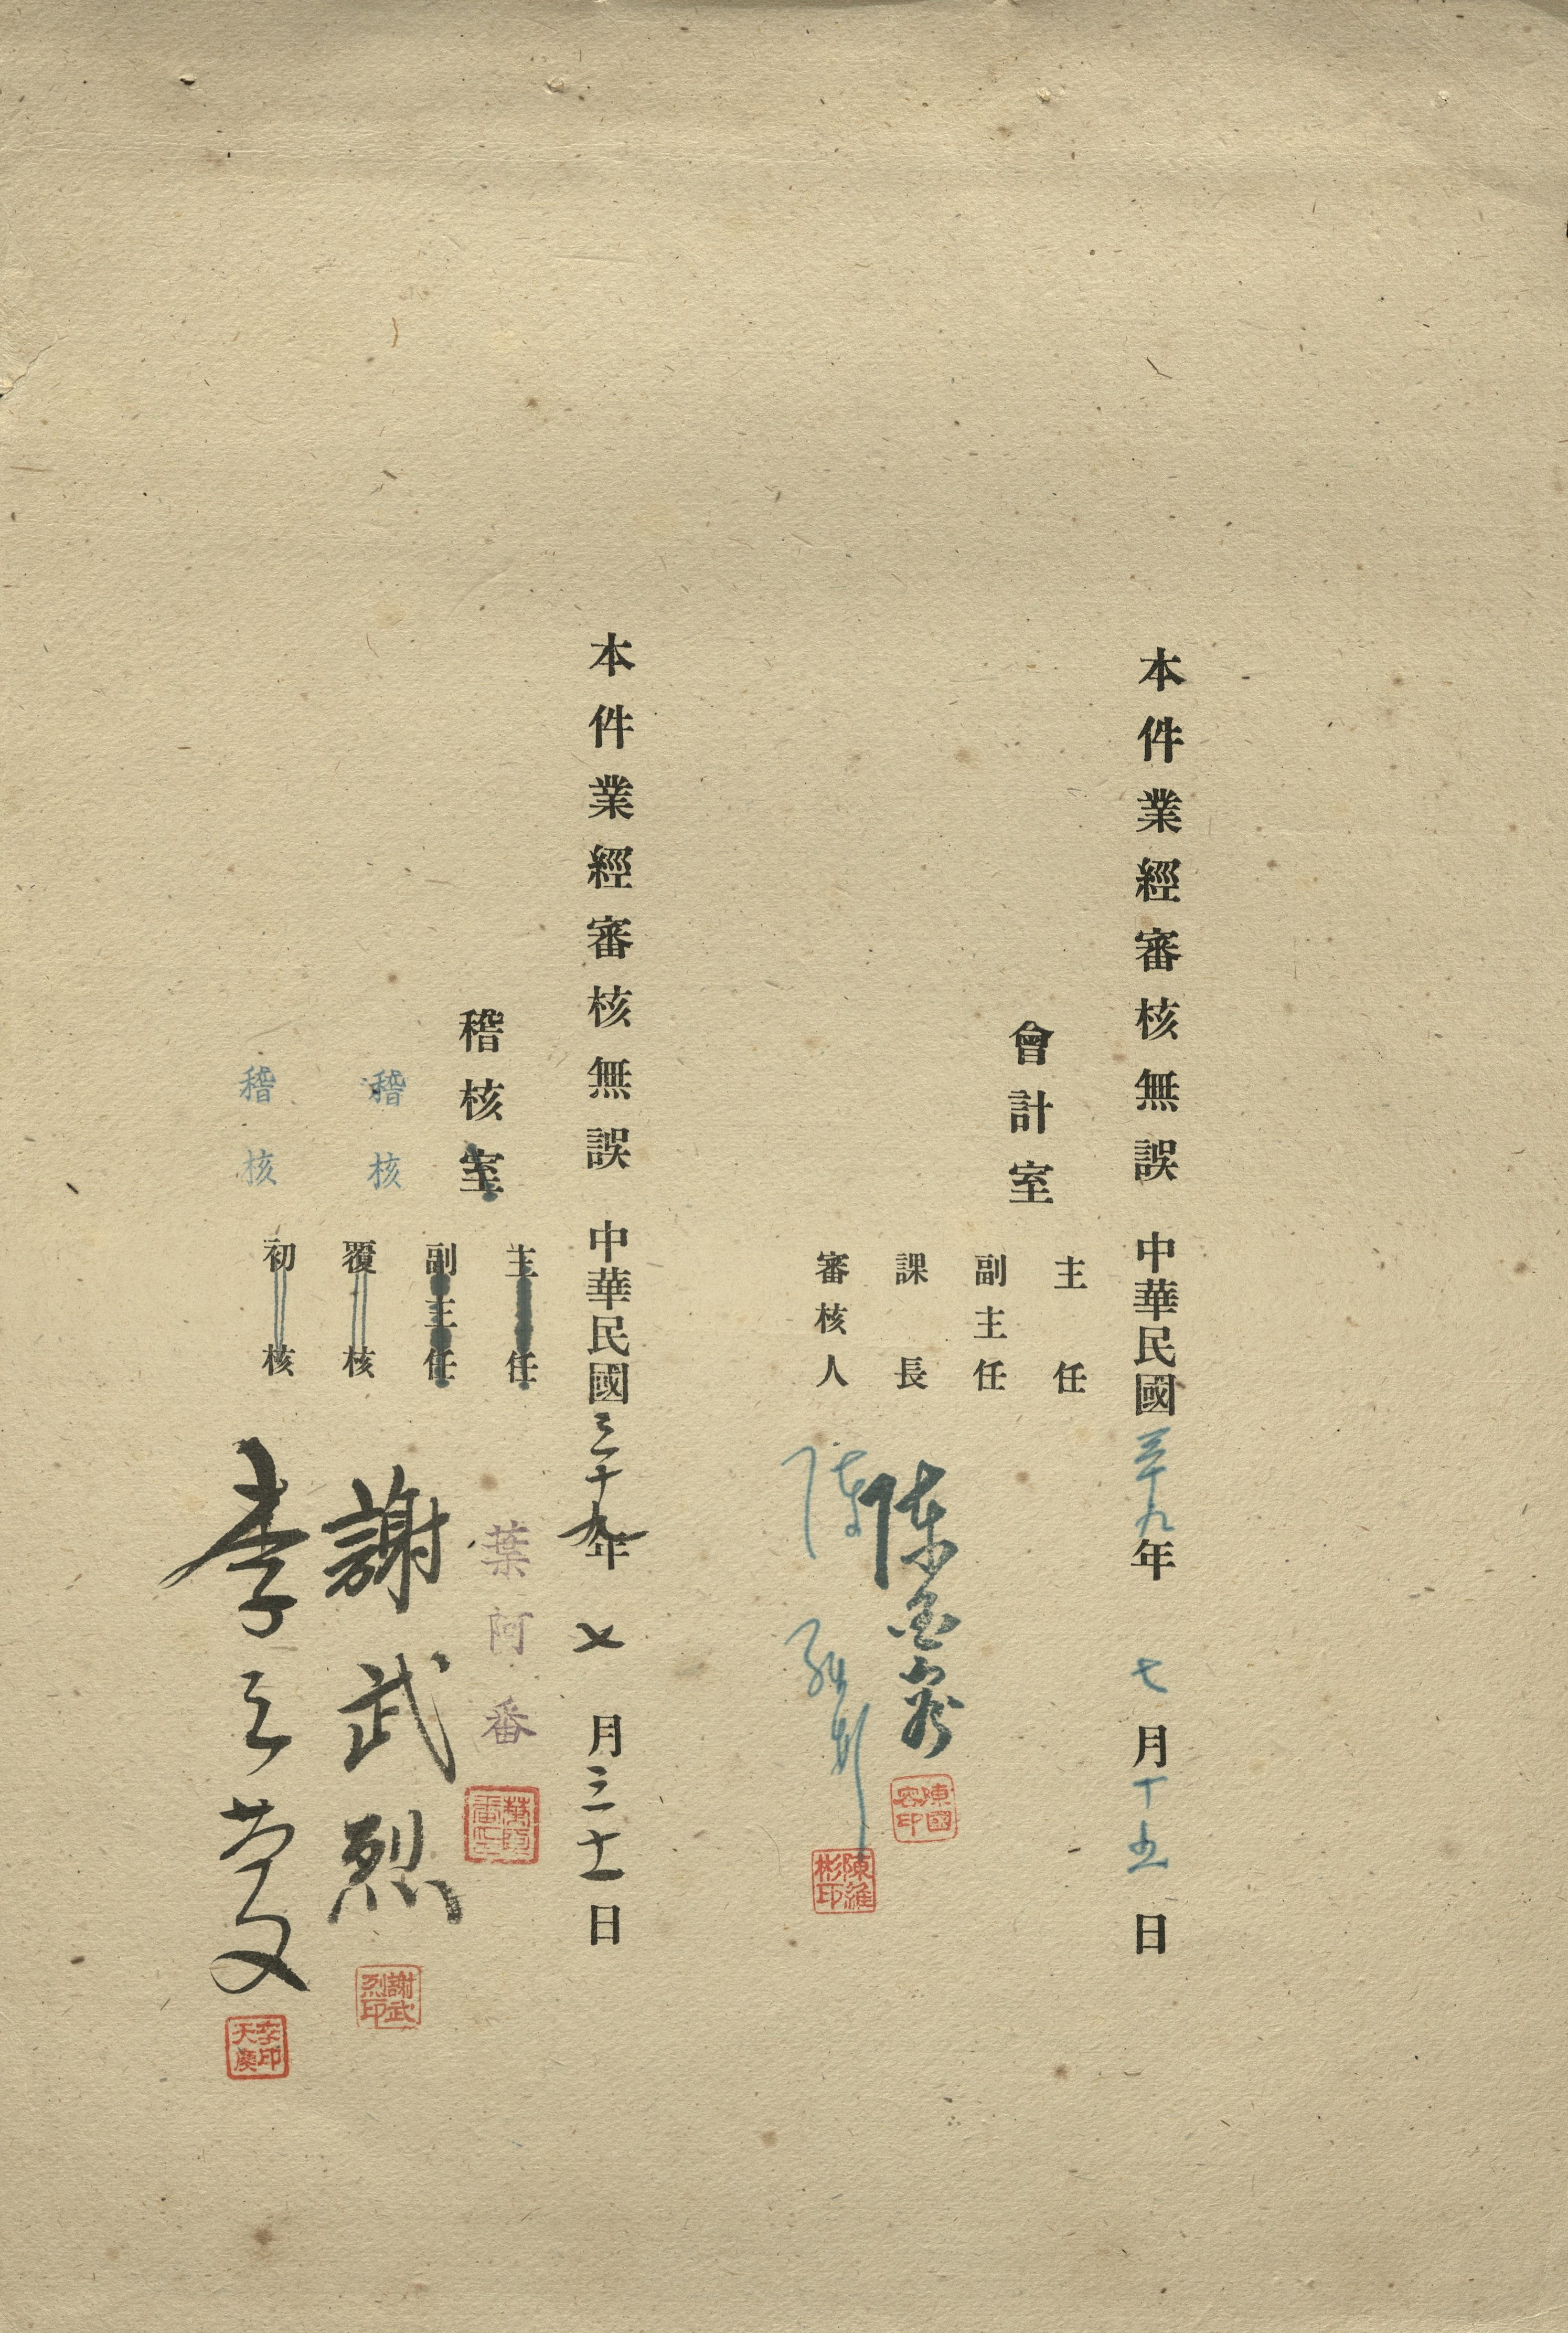 本件業經審核無誤 中華民國三十九年 七月十五日
會計室
主任
副主任
課長 陳國容
陳國容印
審核人 陳淮彬
陳淮彬印
本件業經審核無誤 中華民國三十九年 七月三十一日
稽核室
主任 葉阿番
葉阿番印
副主任
稽核 覆核 謝武烈
謝武烈印
稽核 初核 李天慶
李天慶印